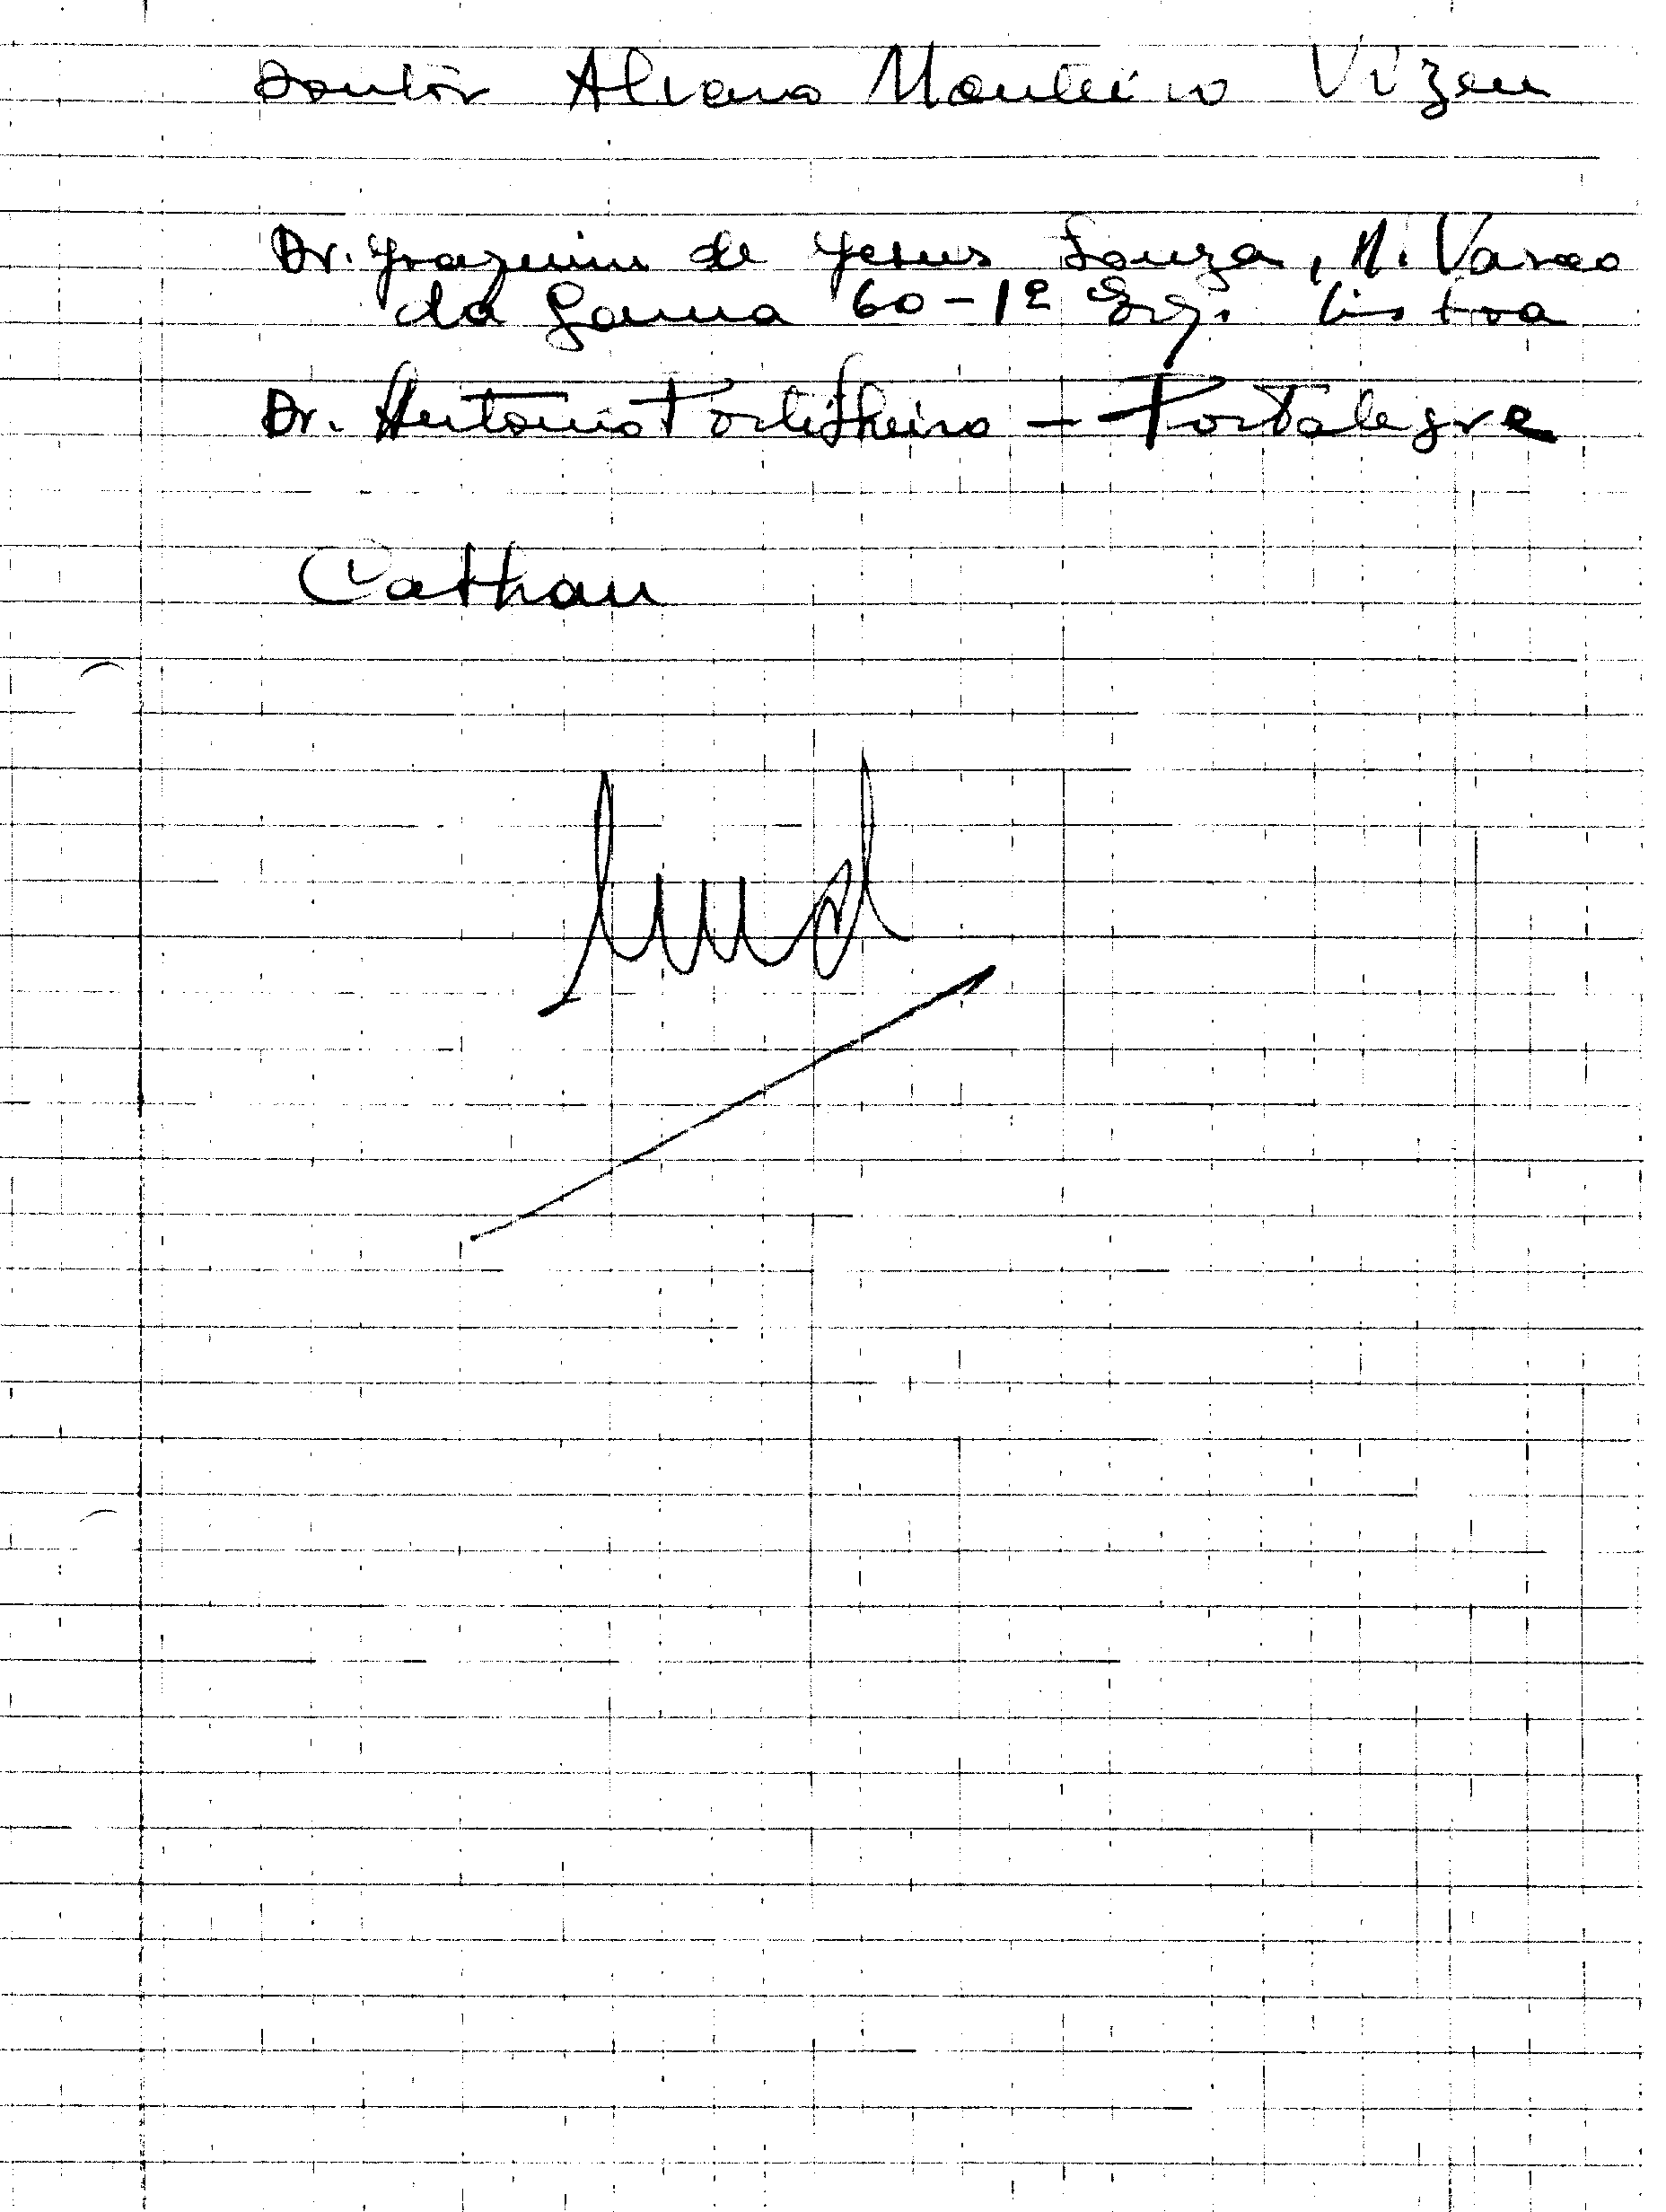 Doutor Alvaro Monteiro Vizeu
Dr. Joaquim de Jesus Souza, R. Vasco
da Gama 60-1º Esq. Lisboa
Dr. Antonio Portilheiro - Portalegre
Cathau